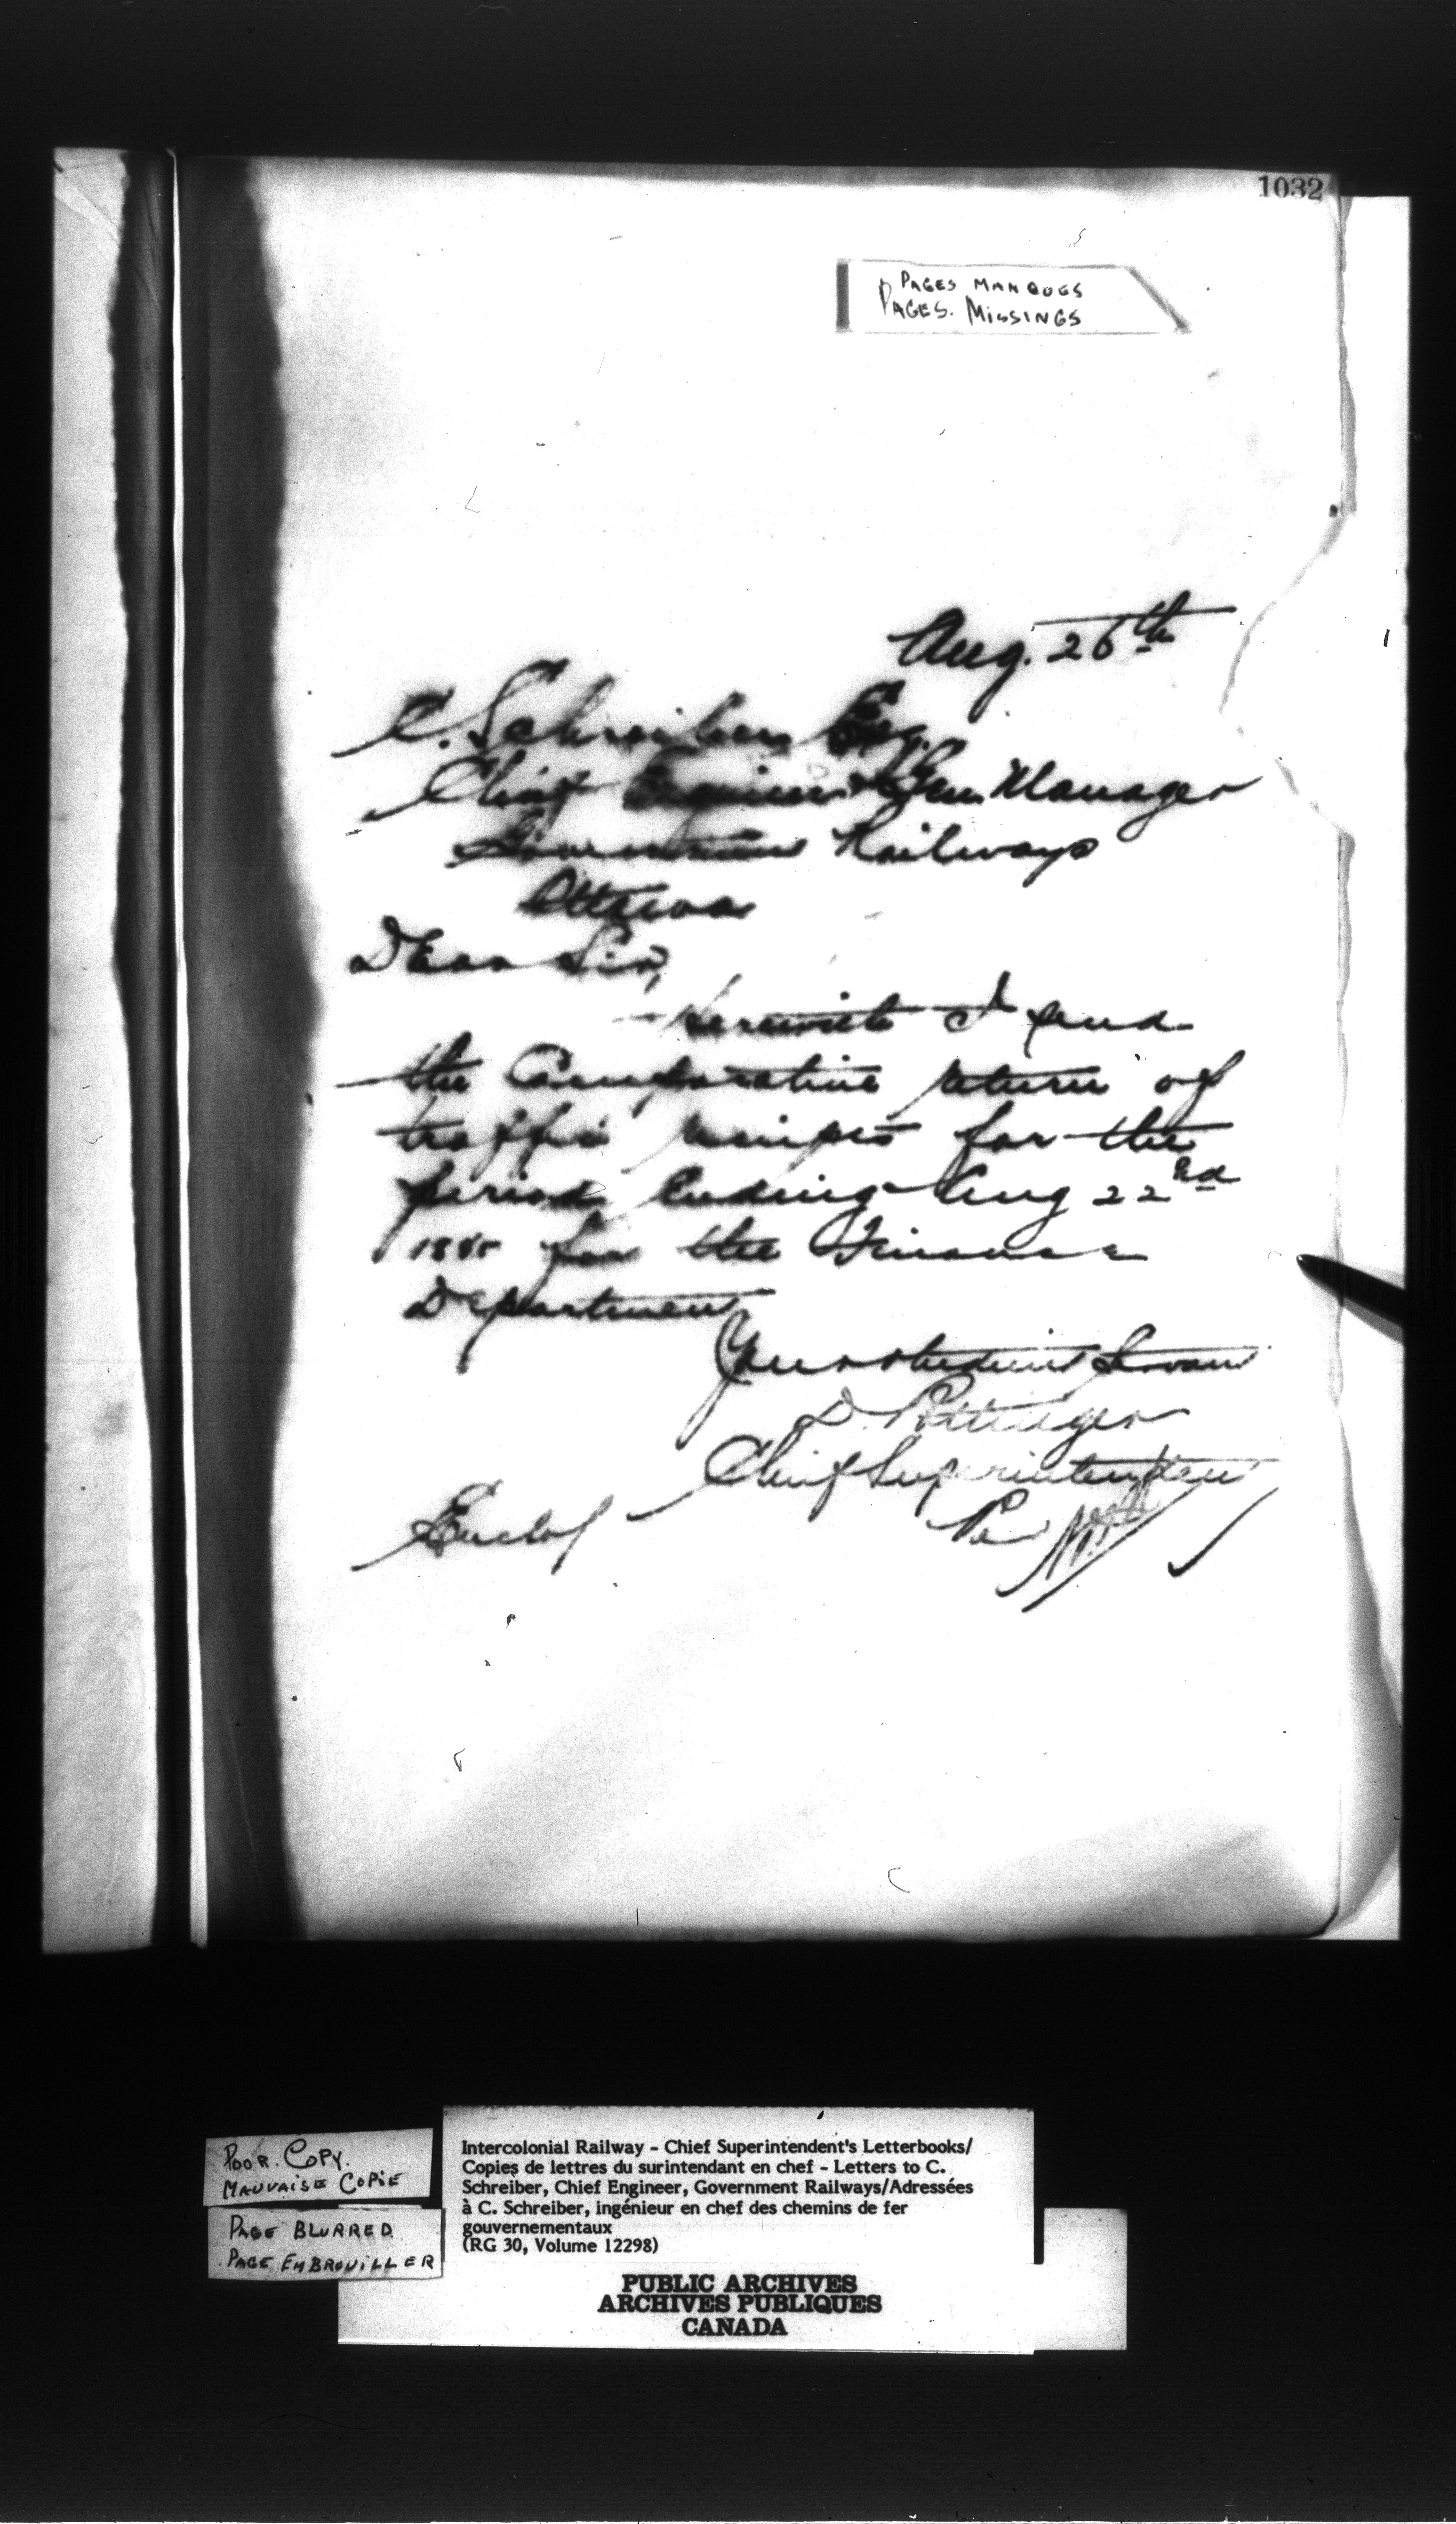 1032
PAGES MANQUES
PAGES. MISSINGS
Aug. 26th
C. Schreiber Esq.
Chief Engineer & Gen Manager
Government Railways
Ottawa
Dear Sir,
Herewith I send
the Comparative return of
traffic receipts for the
period ending Aug 22nd
1885 for the Finance
Department
Your obedient Servant
D. Pottinger
Chief Superintendent
Per
Enclos
POOR. COPY.
MAUVAISE COPIE
PAGE BLURRED
PAGE EMBROUILLER
Intercolonial Railway – Chief Superintendent's Letterbooks/
Copies de lettres du surintendant en chef – Letters to C.
Schreiber, Chief Engineer, Government Railways/Adressées
à C. Schreiber, ingénieur en chef des chemins de fer
gouvernementaux
(RG 30, Volume 12298)
PUBLIC ARCHIVES
ARCHIVES PUBLIQUES
CANADA